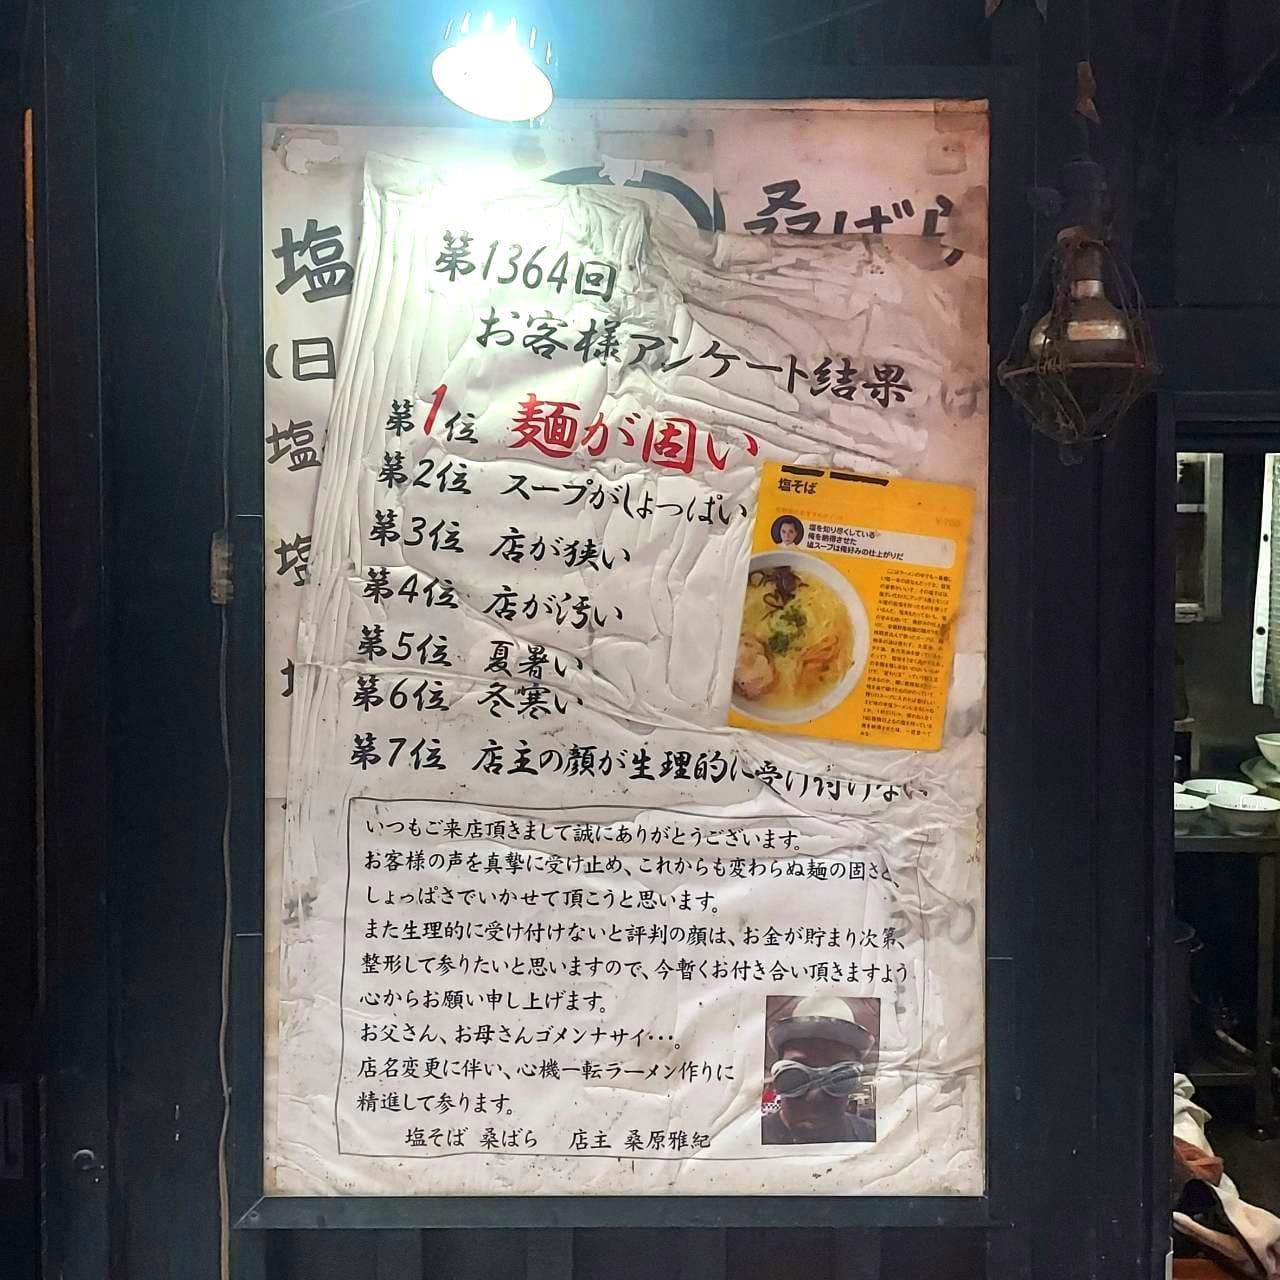 桑ばら
塩
(日
塩
塩
第1364回
お客様アンケート結果
第1位 麺が固い
第2位 スープがしょっぱい
第3位 店が狭い
第4位 店が汚い
第5位 夏暑い
第6位 冬寒い
第7位 店主の顔が生理的に受け付けない
塩そば
塩を知り尽くしている
俺を納得させた
塩スープは俺好みの仕上がりだ
いつもご来店頂きまして誠にありがとうございます。
お客様の声を真摯に受け止め、これからも変わらぬ麺の固さと、
しょっぱさでいかせて頂こうと思います。
また生理的に受け付けないと評判の顔は、お金が貯まり次第、
整形して参りたいと思いますので、今暫くお付き合い頂きますよう
心からお願い申し上げます。
お父さん、お母さんゴメンナサイ・・・。
店名変更に伴い、心機一転ラーメン作りに
精進して参ります。
塩そば 桑ばら 店主 桑原雅紀